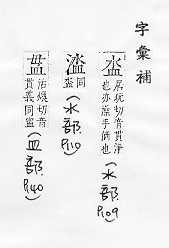 字彙補
居玩切音貫淨
也亦澡手俱也
(水部.
P.109)
同
(水部.
P.110)
沽煥切音
貫義同盥
(皿部.
P.140)